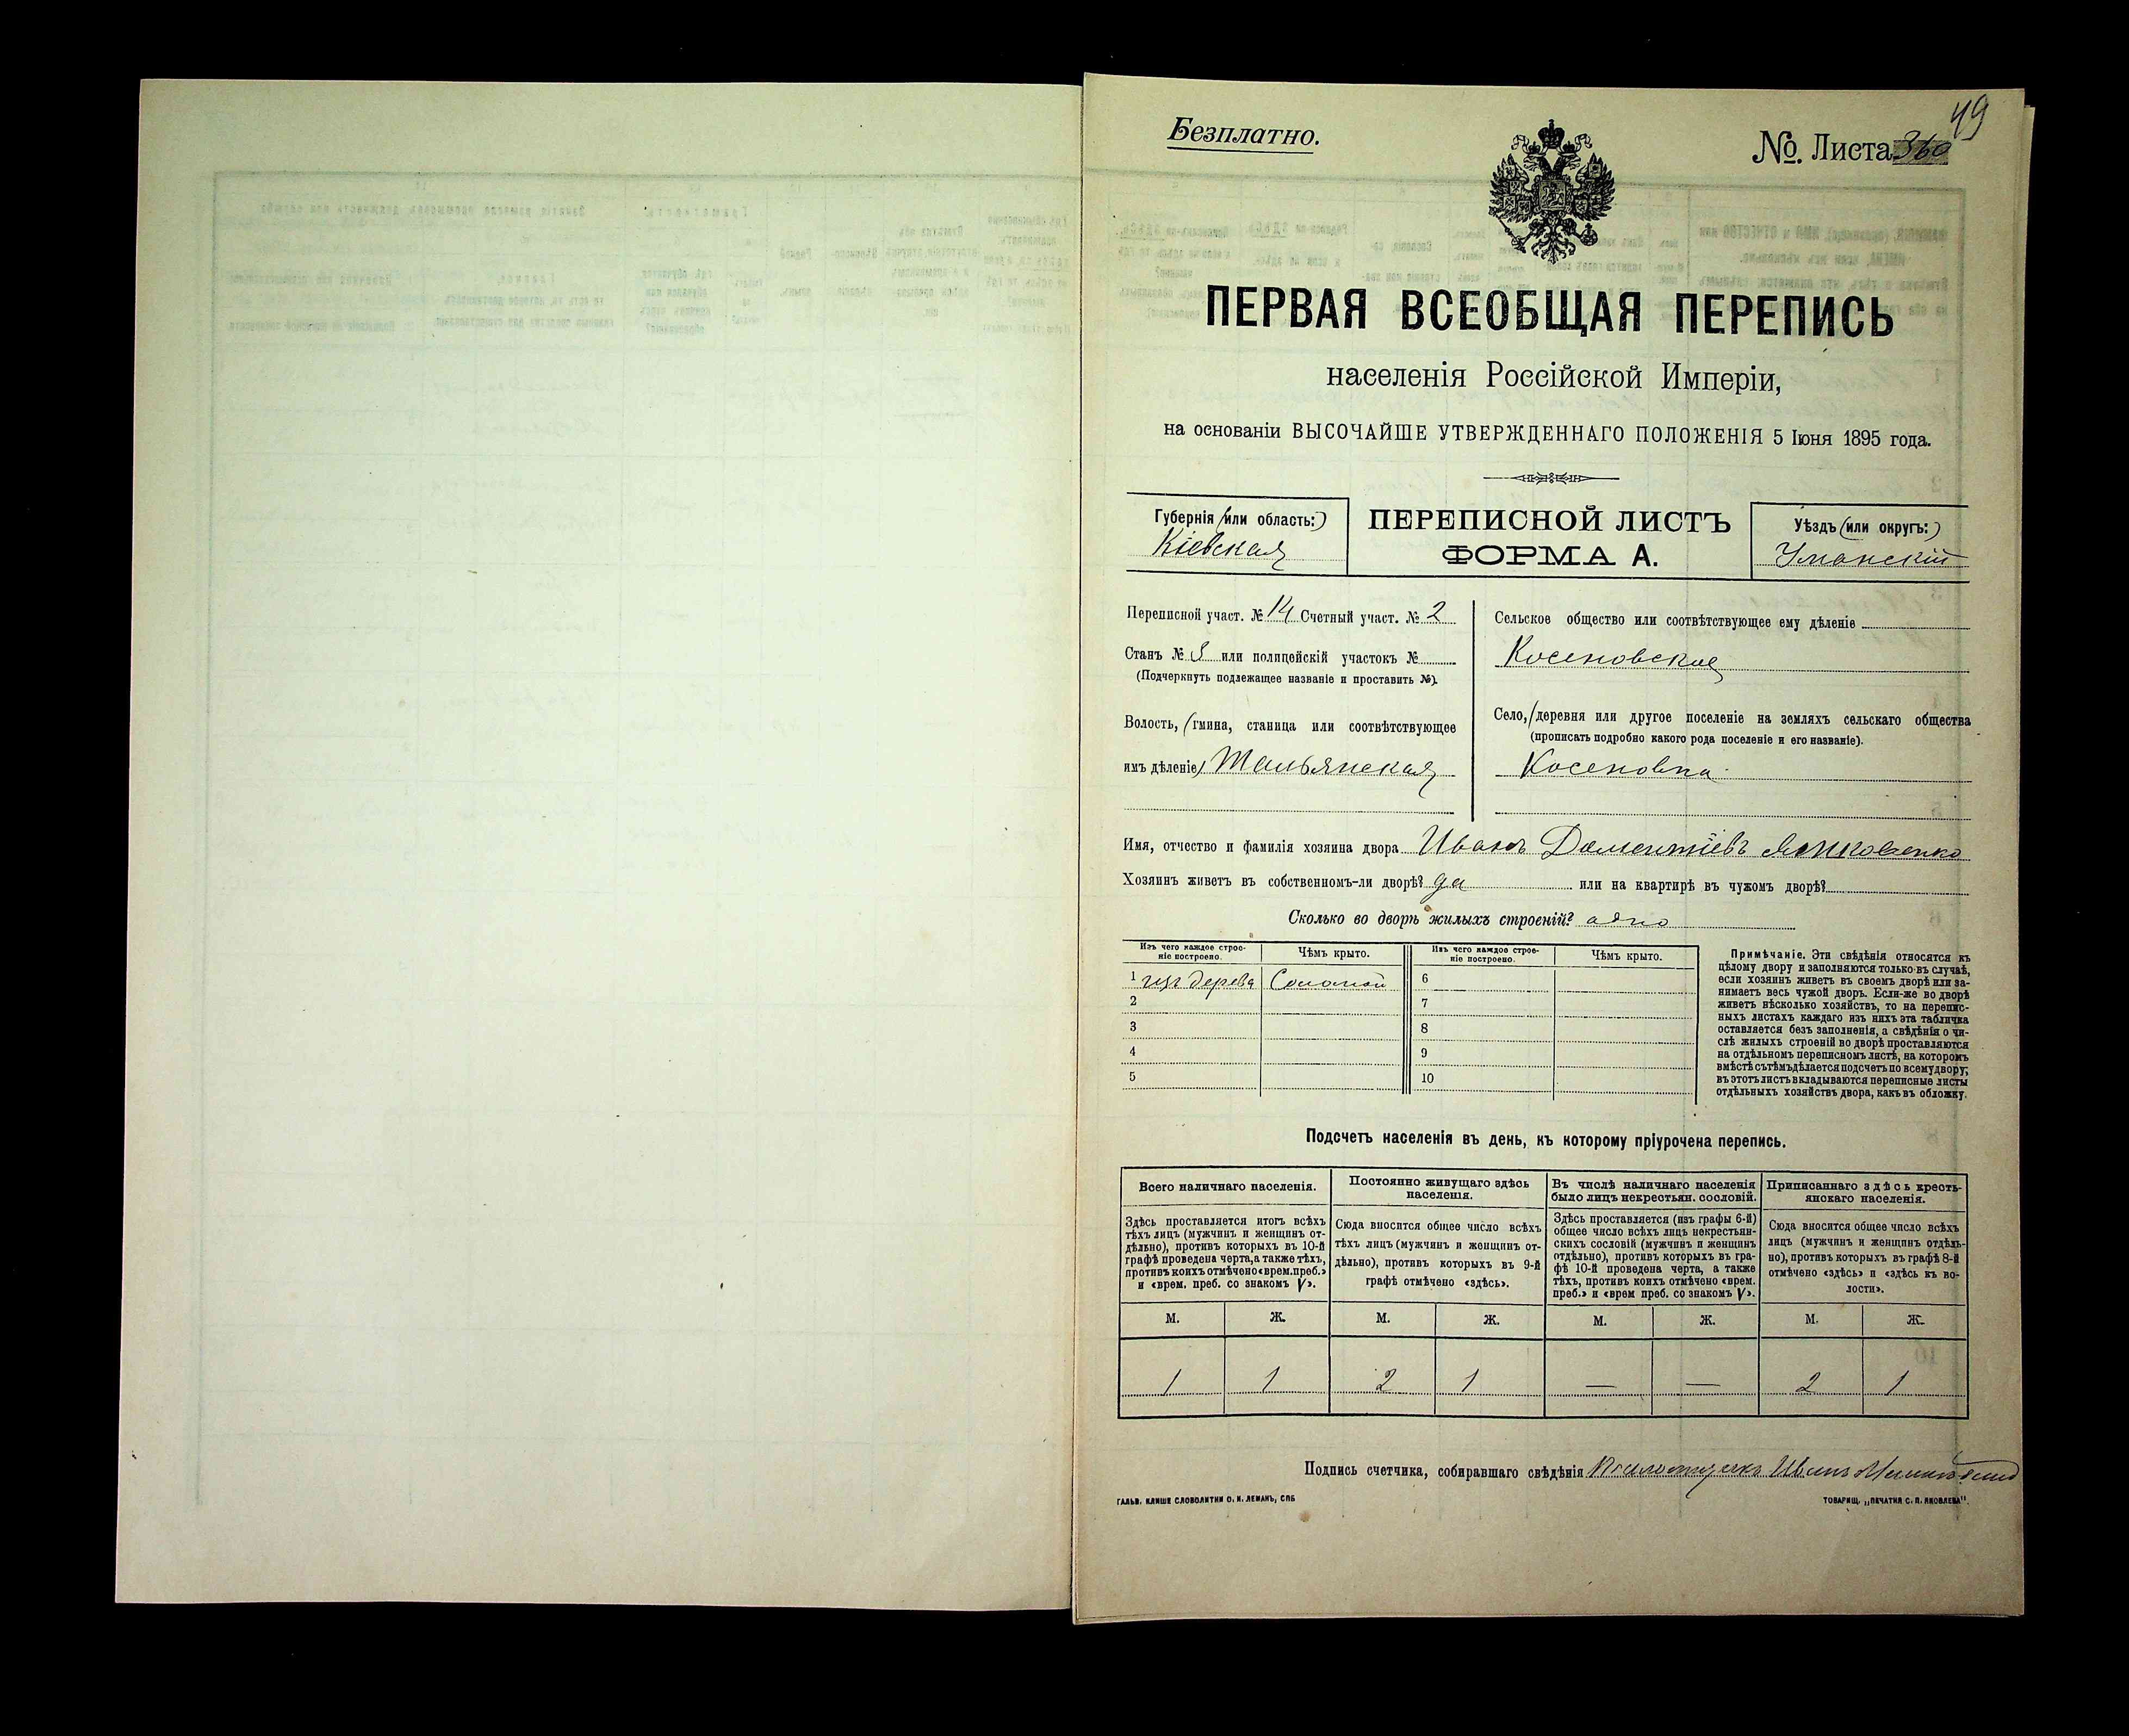 49
Безплатно.
№. Листа 360
ПЕРВАЯ ВСЕОБЩАЯ ПЕРЕПИСЬ
населенія Россійской Имперіи,
на основаніи ВЫСОЧАЙШЕ УТВЕРЖДЕННАГО ПОЛОЖЕНІЯ 5 Іюня 1895 года.
Губернія (или область:)
Кіевская
ПЕРЕПИСНОЙ ЛИСТЪ
ФОРМА А.
Уѣздъ (или округъ:)
Уманскій
Переписной участ. № 14 Счетный участ. № 2
Станъ № 3 или полицейскій участокъ №
(Подчеркнуть подлежащее названіе и проставить №).
Волость, (гмина, станица или соотвѣтствующее
имъ дѣленіе) Тальянская
Сельское общество или соотвѣтствующее ему дѣленіе
Косеновское
Село, (деревня или другое поселеніе на земляхъ сельскаго общества
(прописать подробно какого рода поселеніе и его названіе).
Косеновка
Имя, отчество и фамилія хозяина двора Иванъ Доментіевъ
Хозяинъ живетъ въ собственномъ-ли дворѣ? да или на квартирѣ въ чужомъ дворѣ?
Сколько во дворѣ жилыхъ строеній? адно
Изъ чего каждое строе-
ніе построено.
Чѣмъ крыто.
Изъ чего каждое строе-
ніе построено.
Чѣмъ крыто.
1 изъ дерева Соломой 6
2 7
3 8
4 9
5 10
Примѣчаніе. Эти свѣдѣнія относятся къ
цѣлому двору и заполняются только въ случаѣ,
если хозяинъ живетъ въ своемъ дворѣ или за-
нимаетъ весь чужой дворъ. Если-же во дворѣ
живетъ нѣсколько хозяйствъ, то на перепис-
ныхъ листахъ каждаго изъ нихъ эта табличка
оставляется безъ заполненія, а свѣдѣнія о чи-
слѣ жилыхъ строеній во дворѣ проставляются
на отдѣльномъ переписномъ листѣ, на которомъ
вмѣстѣ съ тѣмъ дѣлается подсчетъ по всему двору;
въ этотъ листъ вкладываются переписные листы
отдѣльныхъ хозяйствъ двора, какъ въ обложку.
Подсчетъ населенія въ день, къ которому пріурочена перепись.
Всего наличнаго населенія.
Здѣсь проставляется итогъ всѣхъ
тѣхъ лицъ (мужчинъ и женщинъ от-
дѣльно), противъ которыхъ въ 10-й
графѣ проведена черта, а также тѣхъ,
противъ коихъ отмѣчено «врем. преб.»
и «врем. преб. со знакомъ V».
Постоянно живущаго здѣсь
населенія.
Сюда вносится общее число всѣхъ
тѣхъ лицъ (мужчинъ и женщинъ от-
дѣльно), противъ которыхъ въ 9-й
графѣ отмѣчено «здѣсь».
Въ числѣ наличнаго населенія
было лицъ некрестьян. сословій.
Здѣсь проставляется (изъ графы 6-й)
общее число всѣхъ лицъ некрестьян-
скихъ сословій (мужчинъ и женщинъ
отдѣльно), противъ которыхъ въ гра-
фѣ 10-й проведена черта, а также
тѣхъ, противъ коихъ отмѣчено «врем.
преб.» и «врем преб. со знакомъ V».
Приписаннаго здѣсь кресть-
янскаго населенія.
Сюда вносится общее число всѣхъ
лицъ (мужчинъ и женщинъ отдѣль-
но), противъ которыхъ въ графѣ 8-й
отмѣчено «здѣсь» и «здѣсь къ во-
лости».
М. Ж. М. Ж. М. Ж. М. Ж.
1 1 2 1 — — 2 1
Подпись счетчика, собиравшаго свѣдѣнія Иванъ
ГАЛЬВ. КЛИШЕ СЛОВОЛИТНИ О. И. ЛЕМАНЪ, СПБ
ТОВАРИЩ. „ПЕЧАТНЯ С. П. ЯКОВЛЕВА".